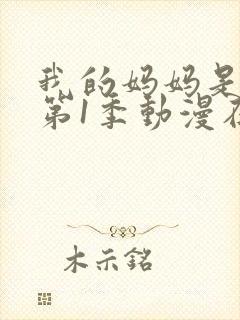 我的妈妈是
第1季動漫在
木示銘